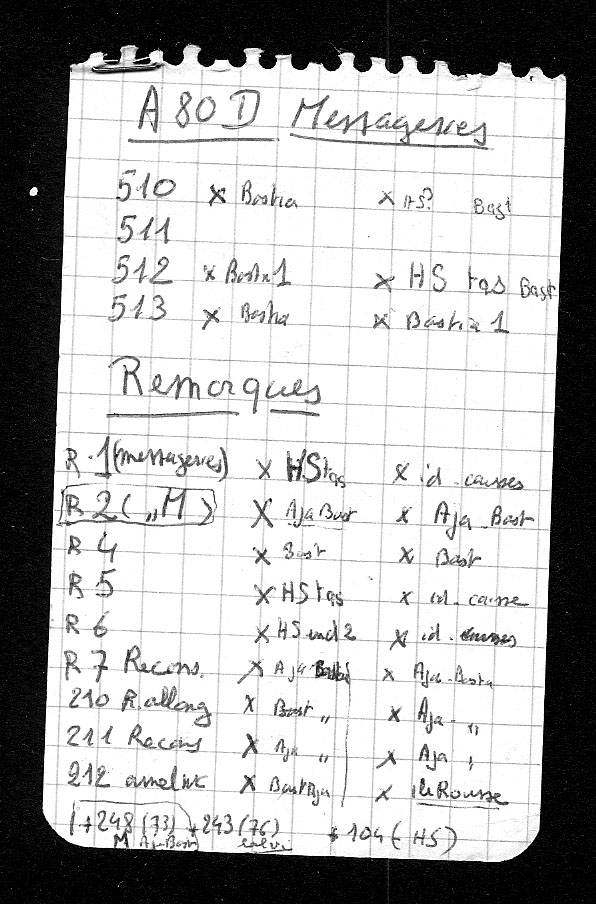 A 80 D Messageries
510 x Bastia x HS? Bast
511
512 x Bastia 1 x HS tas Bast
513 x Bastia x Bastia 1
Remorques
R 1 (messageries) x HS tas x id. causes
R 2 ( ,, M ) x Aja Bast x Aja. Bast
R 4 x Bast x Bast
R 5 x HS tas x id. cause
R 6 x HS ind 2 x id. causes
R 7 Recons. x Aja x Aja. Bastia
210 R. allong x Bast ,, x Aja. ,,
211 Recons x Aja ,, x Aja ,,
212 x Bast Aja x ile Rousse
+ 248 (73) + 243 (76) 104 ( HS )
M Aja Bast